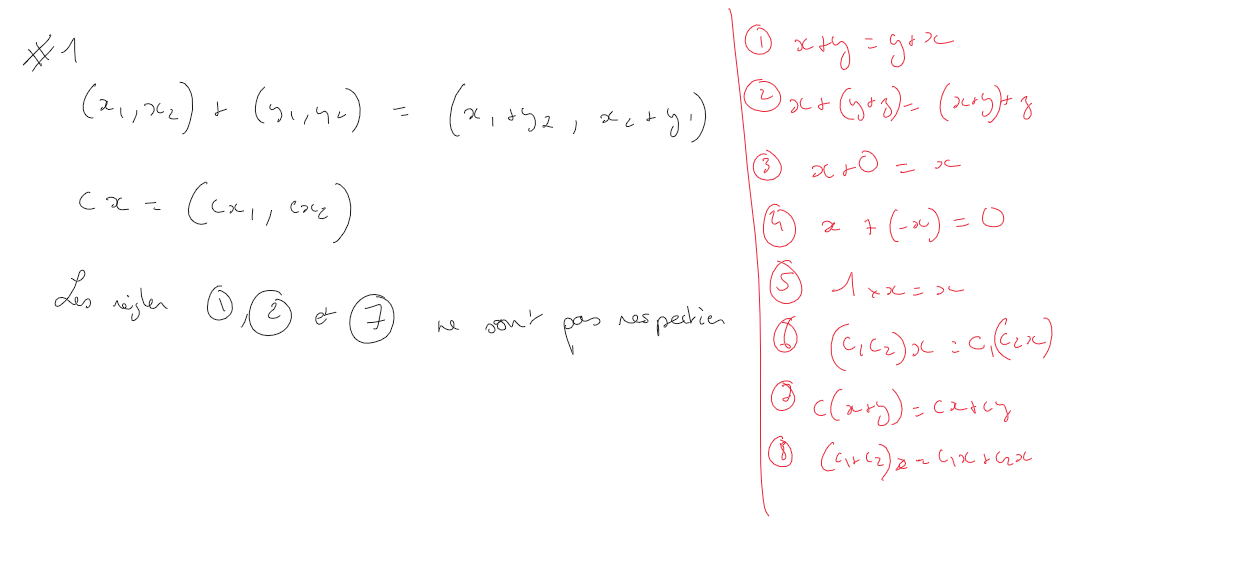 #1
(x₁, x₂) + (y₁, y₂) = (x₁ + y₂, x₂ + y₁)
cx = (cx₁, cx₂)
Les règles ①, ② et ⑦ ne sont pas respectées
① x+y = y+x
② x + (y+z) = (x+y) + z
③ x + 0 = x
④ x + (-x) = 0
⑤ 1 × x = x
⑥ (c₁c₂)x = c₁(c₂x)
⑦ c(x+y) = cx+cy
⑧ (c₁+c₂)x = c₁x + c₂x